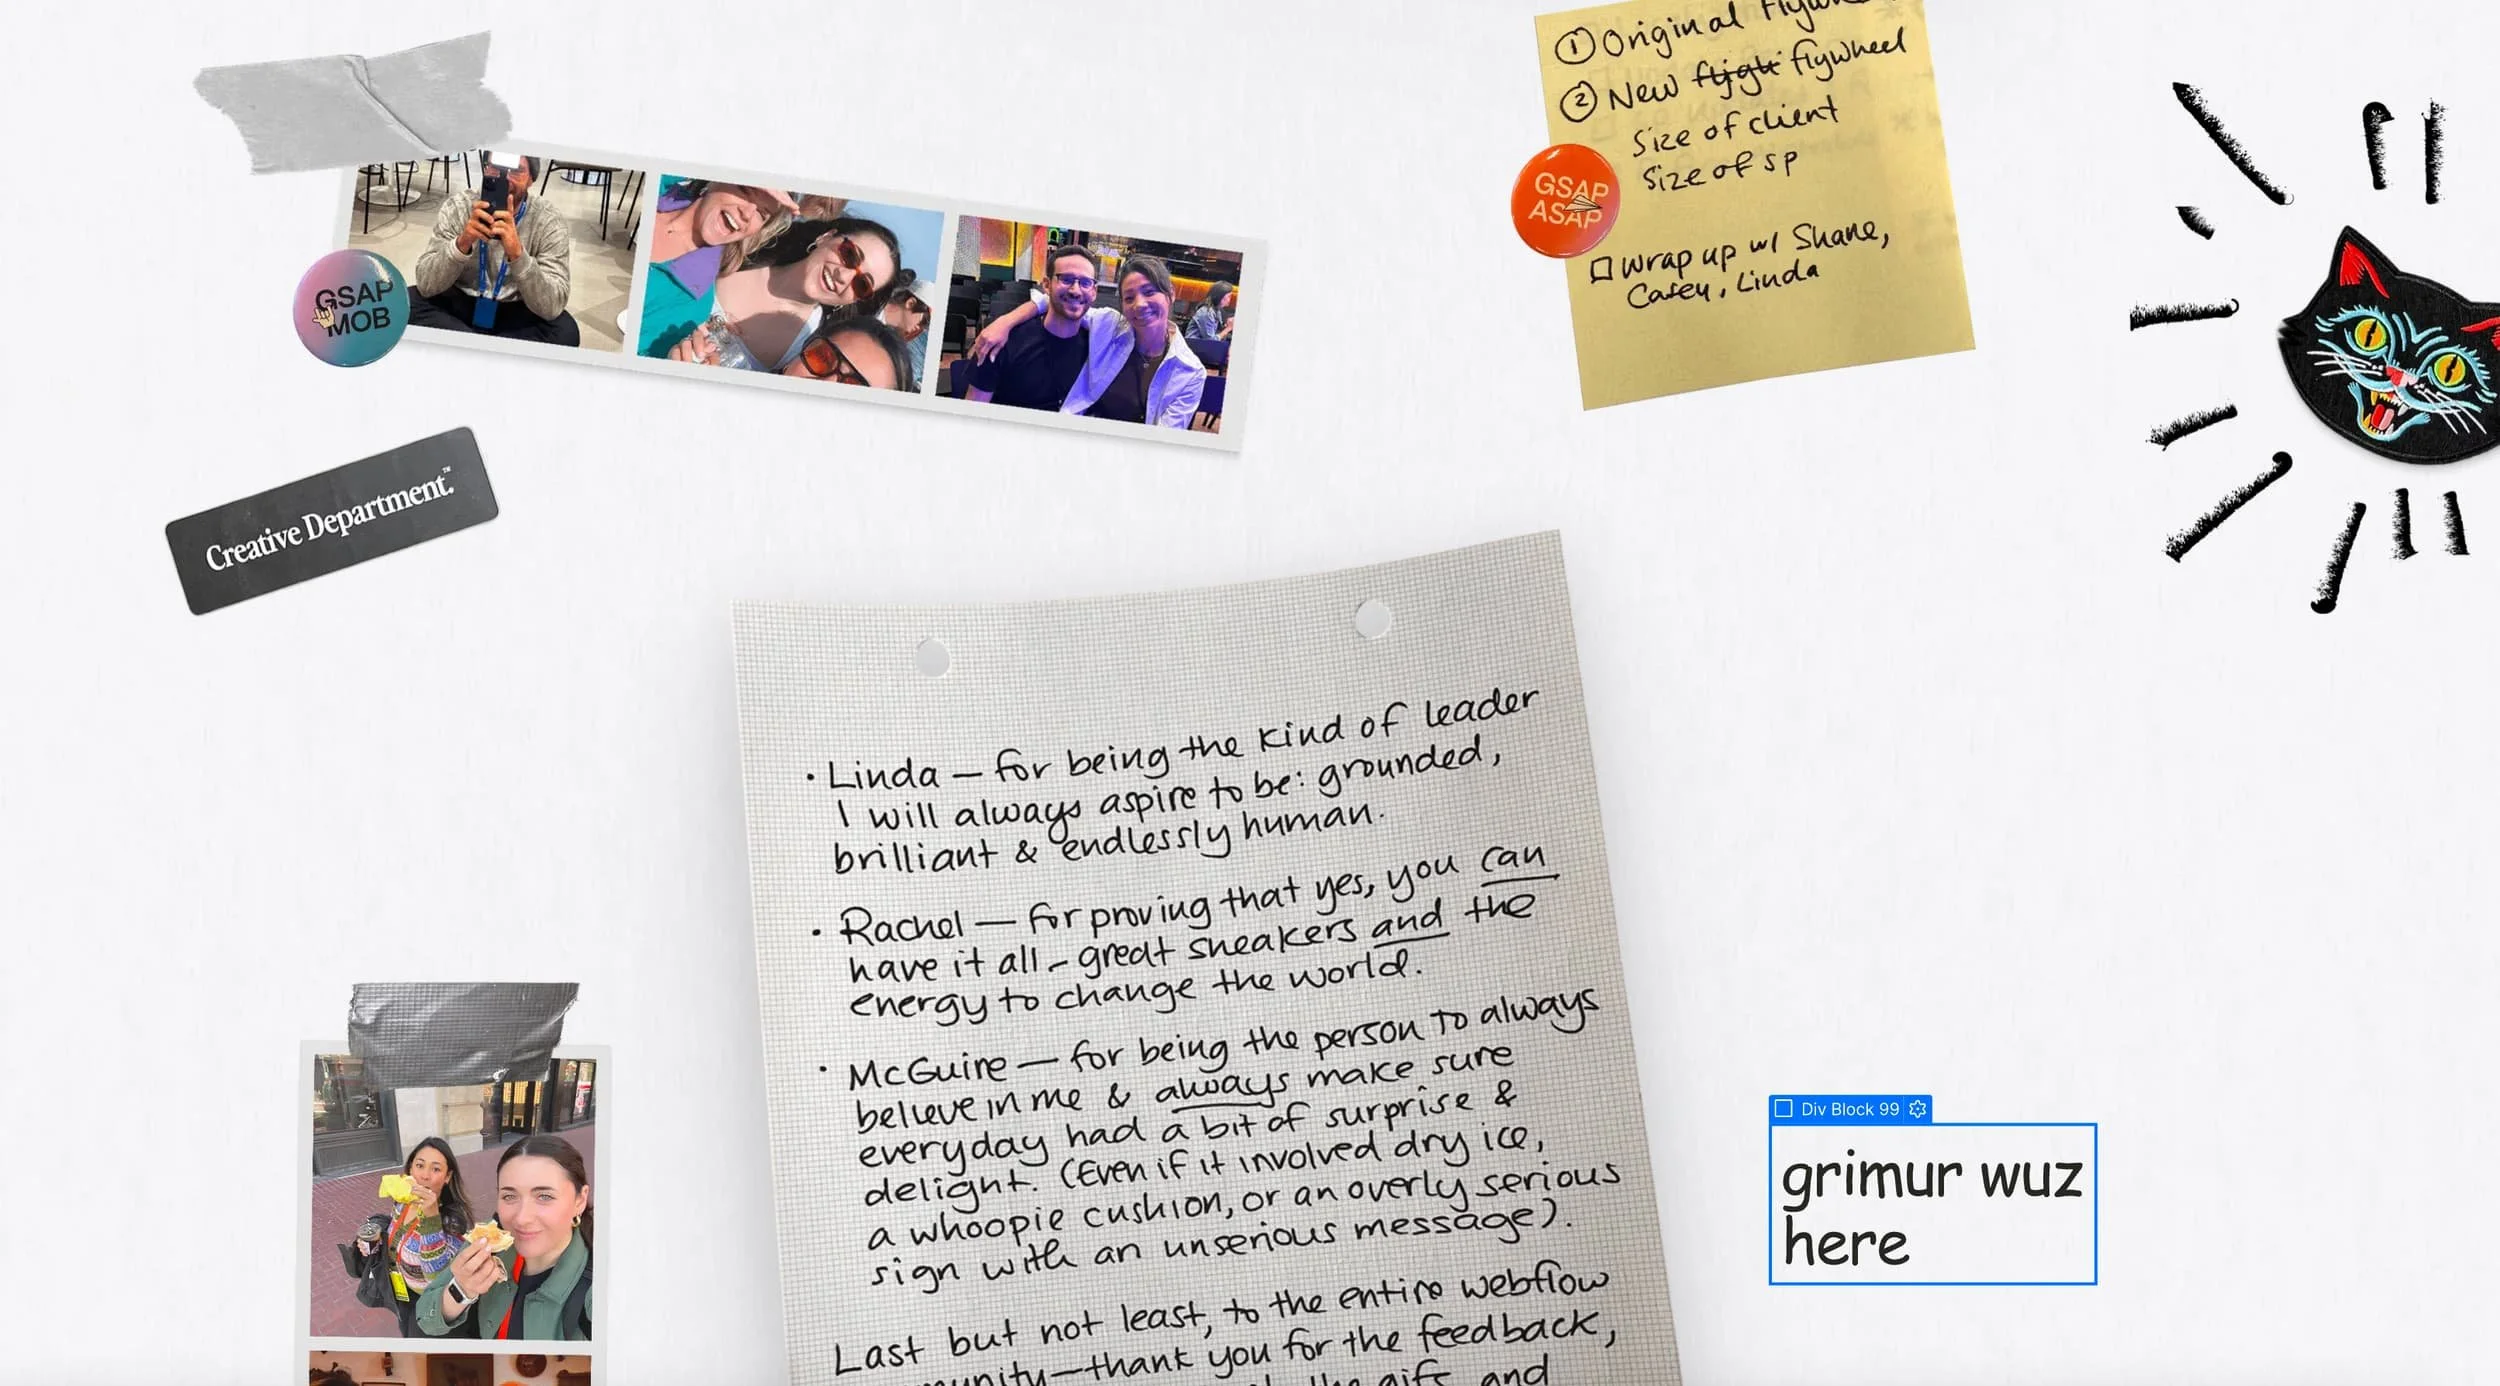 ① Original Flywh
② New fligh flywheel
Size of client
Size of sp
wrap up w/ Shane,
Casey, Linda
GSAP
ASAP
GSAP
MOB
Creative Department.™
• Linda — for being the kind of leader
I will always aspire to be: grounded,
brilliant & endlessly human.
• Rachel — for proving that yes, you can
have it all – great sneakers and the
energy to change the world.
• McGuire — for being the person to always
believe in me & always make sure
everyday had a bit of surprise &
delight. (Even if it involved dry ice,
a whoopie cushion, or an overly serious
sign with an unserious message).
Last but not least, to the entire webflow
munity—thank you for the feedback,
the gifs and
Div Block 99
grimur wuz
here